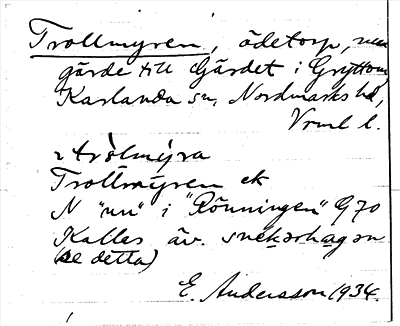 Trollmyren, ödetorp, nu
gärde till Gärdet i Gryttom
Karlanda sn, Nordmarks hd,
Vrml l.
2 trölmy̔ra
Trollmyren ek
N "nu" i "Rönningen" G 70
Kallas äv. snekərhagən
(se detta)
E. Andersson 1934.